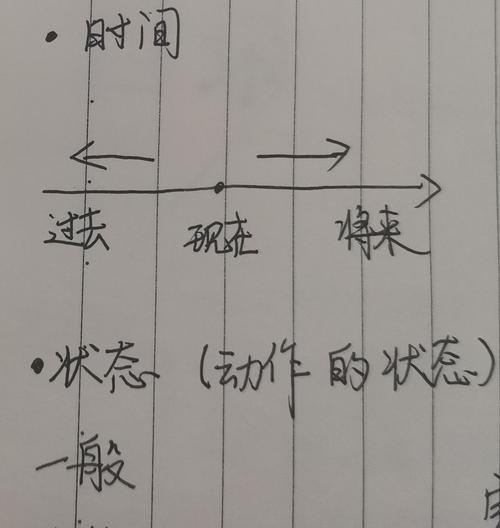 • 时间
过去 现在 将来
• 状态 (动作的状态)
一般